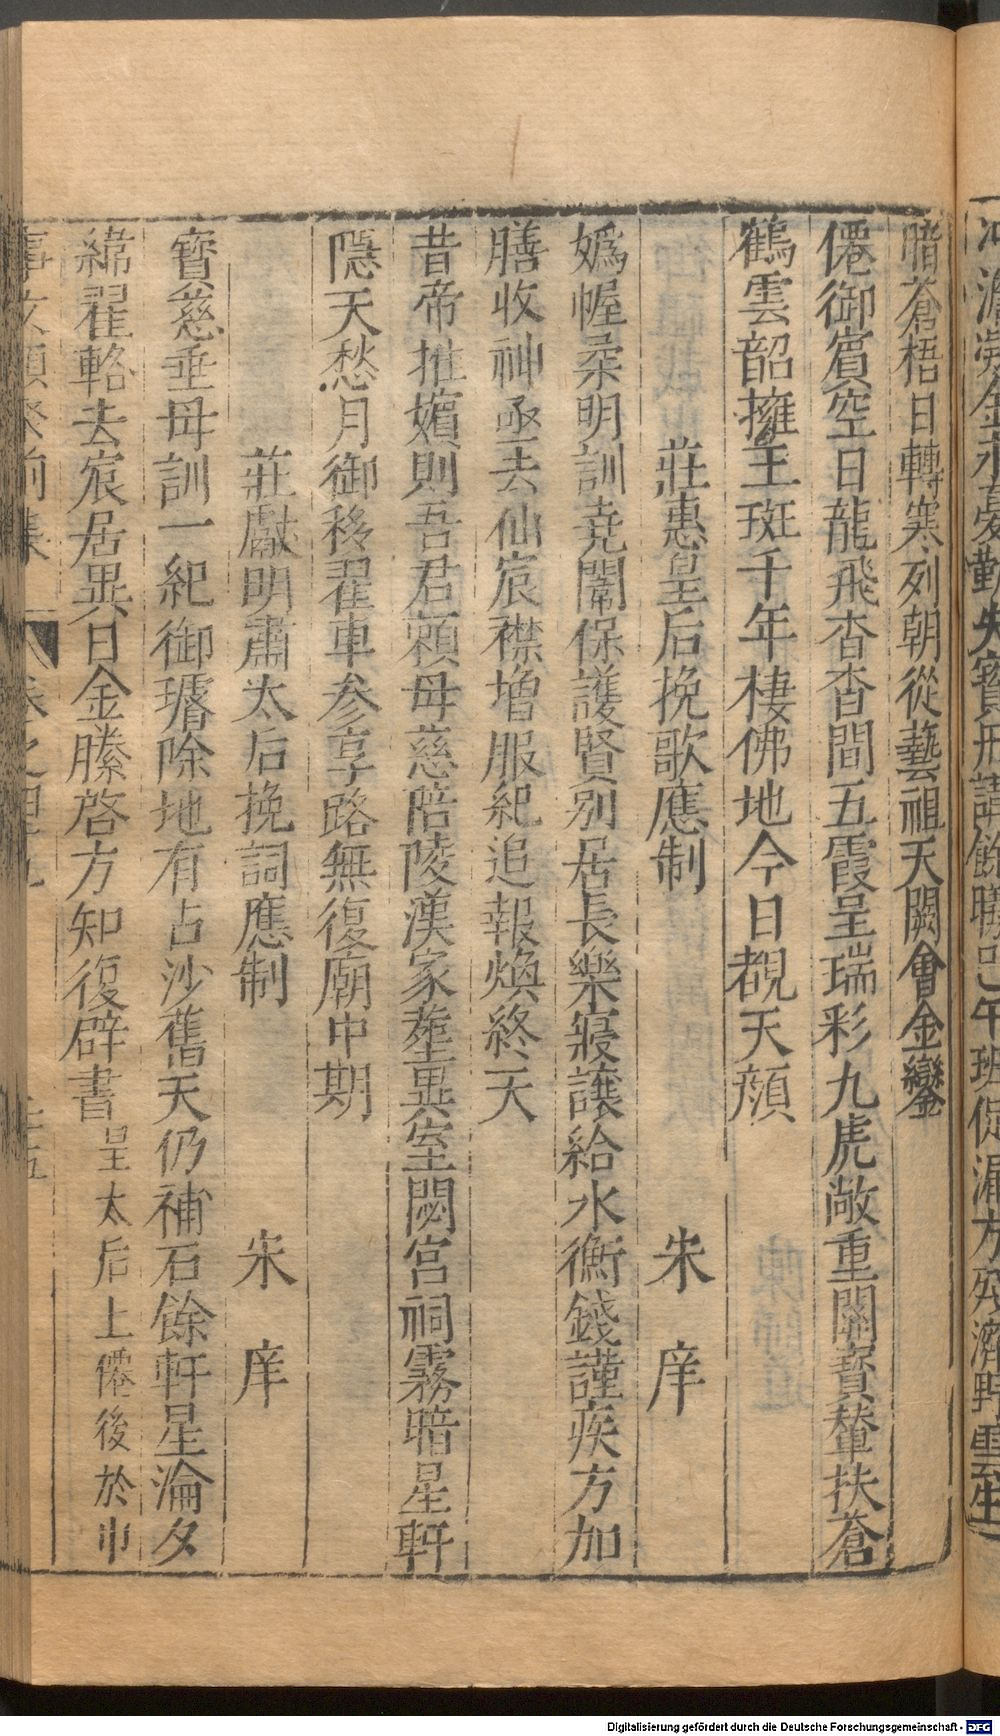 冲澹漪金永憂勤失寶刑講餘曦已午班促漏方殘濟野雲生
暗蒼梧日轉寒列朝從藝祖天闕會金鑾
僊御賓空日龍飛杳杳間五霞呈瑞彩九虎敞重關寶輦扶蒼
鶴雲韶擁玉班千年棲佛地今日覩天顔
莊惠皇后挽歌應制 宋庠
嬀幄柔明訓堯闈保護賢別居長樂寢讓給水衡錢謹疾方加
膳收神亟去仙宸襟增服紀追報煥終天
昔帝推嬪則吾君頼母慈陪陵漢家塟異室閟宮祠霧暗星軒
隱天愁月御移翟車參享路無復廟中期
莊獻明肅太后挽詞應制 宋庠
寶慈垂母訓一紀御璿除地有占沙舊天仍補石餘軒星淪夕
緯翟輅去宸居異日金縢啓方知復辟書呈太后上僊後於巾
事文類聚前集 卷之四九 五
Digitalisierung gefördert durch die Deutsche Forschungsgemeinschaft - DFG